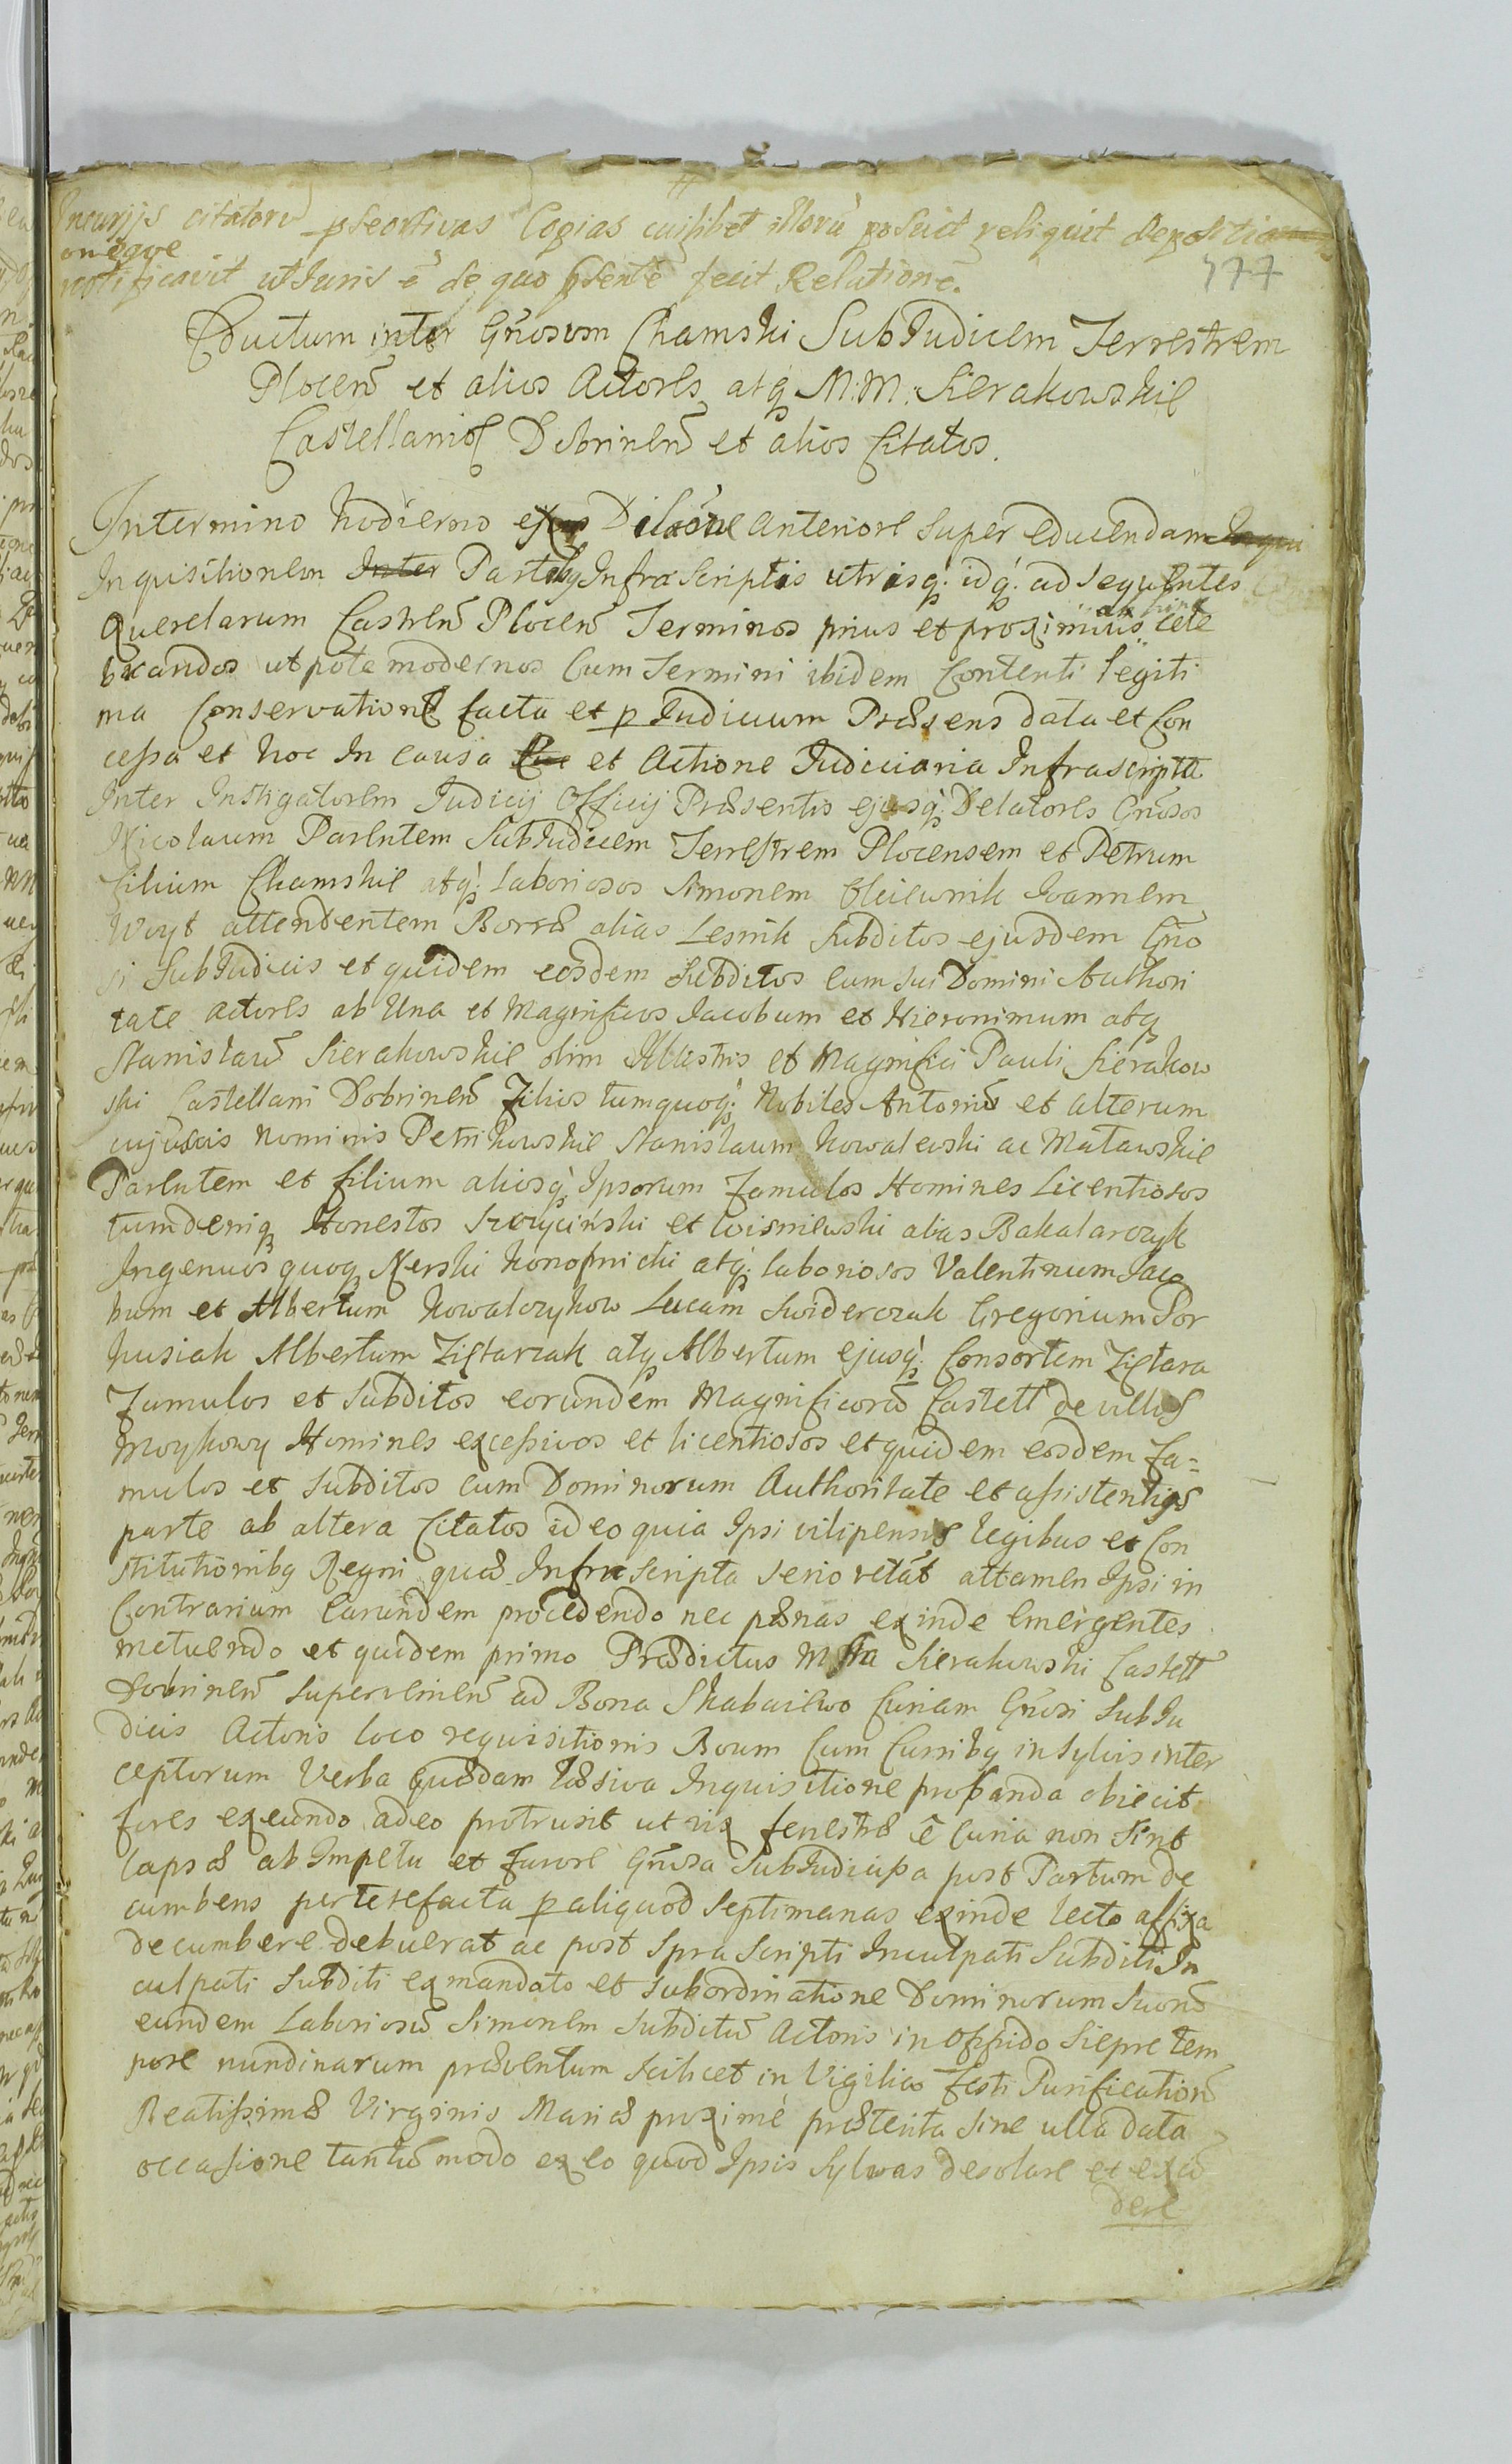 Incurijs citatorū pscortivas Copias cuilibet illorū posuit reliquit depositia
onēqve
notificavit ut Juris ē de quo p̄sentē fecit Relationē.
177
Eductum inter Gn̄osum Chamski SubJudicem Terrestrem
Plocen̄ et alios Actores atq M:M: Sierakowskie
Castellanid Dobrinen̄ et alios Citatos.
Intermino hodierno ex Dilāone anteriore super educendam Inqui
Inquisitionem Inter Partibq Infra Scriptis utrisq: idq: ad sequentes
Querelarum Castren̄ Plocen̄ Terminos prius et proximius cele
brandos utpote modernos Cum Termini ibidem Contenti legiti
ma Conservatione facta et p Judicium Præsens data et Con
cessa et hoc In causa et Actione Judiciaria Infrascripta
Inter Instigatorem Judicij Officij Præsentis ejusq: Delatores Gn̄osos
Nicolaum Parentem SubJudicem Terrestrem Plocensem et Petrum
Filium Chamskie atq: laboriosos Simonem Oleiewnik Joannem
Woyt attendentem Borræ alias Lesnik Subditos ejusdem Gn̄o
si SubJudicis et quidem eosdem Subditos cum sui Domini Authori
tate actores ab Una et Magnificos Jacobum et Hieronimum atq
Stanislaū Sierakowskie olim Illustris et Magnifici Pauli Sierakow
ski Castellani Dobrinen̄ Filios tumquoq: Nobiles Antoniū et alterum
cujusvis nominis Petrikowskie Stanislaum Kowalewski ac Matawskie
Parentem et filium aliosq: Ipsorum Famulos Homines Licentiosos
tumdeniq Honestos et Wisniewski alias Bakalarczyk
Ingenuos quoq Nerski Konopnicki atq: laboriosos Valentinum Jaco
bum et Albertum Kowalczykow Lucam Swiderczak Gregorium Por
kusiak Albertum Zistarzak atq Albertum ejusq: Consortem Zistara
Famulos et Subditos eorundem Magnificorū Castell de villa
Moykowy Homines excessivos et licentiosos et quidem eosdem fa=
mulos et Subditos cum Dominorum Authoritate et assistentijs
parte ab altera Citatos ideo quia Ipsi vilipensis legibus et Con
stitutionibq Regni quæ Infra Scripta serio vetāt attamen Ipsi in
Contrarium Earundem procedendo nec pœnas exinde Emergentes
metuendo et quidem primo Prædictus Sierakowski Castell
Dobrinen̄ supervenien̄ ad Bona Skabaiewo Curiam Gn̄osi SubJu
dicis Actoris loco requisitionis Boum Cum Curribq in sylvis inter
ceptorum Verba quædam læsiva Inquisitione probanda obiecit
fores exeundo adeo protrusit ut vix fenestræ ē Curia non sint
lapsæ ab Impetu et Furore Gn̄osa SubJudicissa post Partum de
cumbens perterefacta p aliquod Septimanas exinde lecto affixa
decumbere debuerat ac post spra scripti Inculpati Subditi In
culpati Subditi ex mandato et subordinatione Dominorum Suorū
eundem Laboriosū Simonem Subditū Actoris in Oppido Sierpe tem
pore nundinarum præventum scilicet in Vigilia Festi Purification̄
Beatissimæ Virginis Mariæ proxime præterita sine ulla data
occasione tantūmodo ex eo quod Ipsis Sylvas desolare et excū
dere